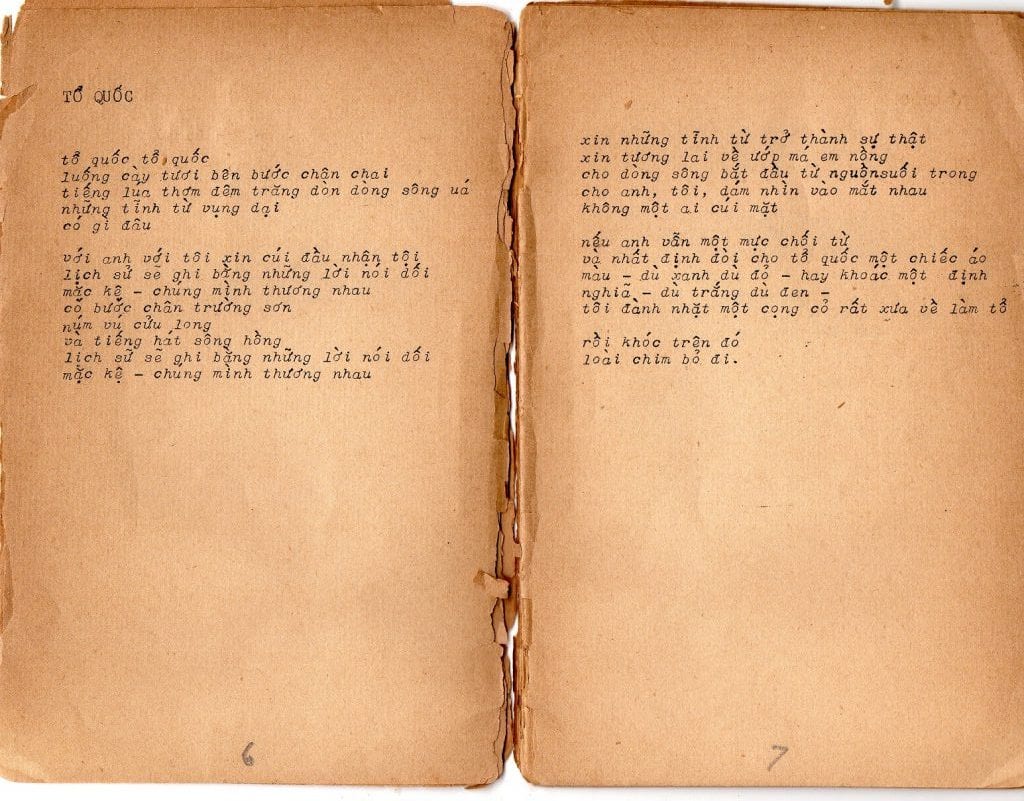 TỔ QUỐC
tổ quốc tổ quốc
luống cày tươi bên bước chân chai
tiếng lúa thơm đêm trăng dòn dòng sông uá
những tĩnh từ vụng dại
có gì đâu
với anh với tôi xin cúi đầu nhận tội
lịch sử sẽ ghi bằng những lời nói dối
mặc kệ - chúng mình thương nhau
có bước chân trường sơn
núm vú cửu long
và tiếng hát sông hồng
lịch sử sẽ ghi bằng những lời nói dối
mặc kệ - chúng mình thương nhau
6
xin những tĩnh từ trở thành sự thật
xin tương lai về ướp má em nồng
cho dòng sông bắt đầu từ nguồnsuối trong
cho anh, tôi, dám nhìn vào mắt nhau
không một ai cúi mặt
nếu anh vẫn một mực chối từ
và nhất định đòi cho tổ quốc một chiếc áo
màu - dù xanh dù đỏ - hay khoác một định
nghiã - dù trắng dù đen -
tôi đành nhặt một cọng cỏ rất xưa về làm tổ
rồi khóc trên đó
loài chim bỏ đi.
7